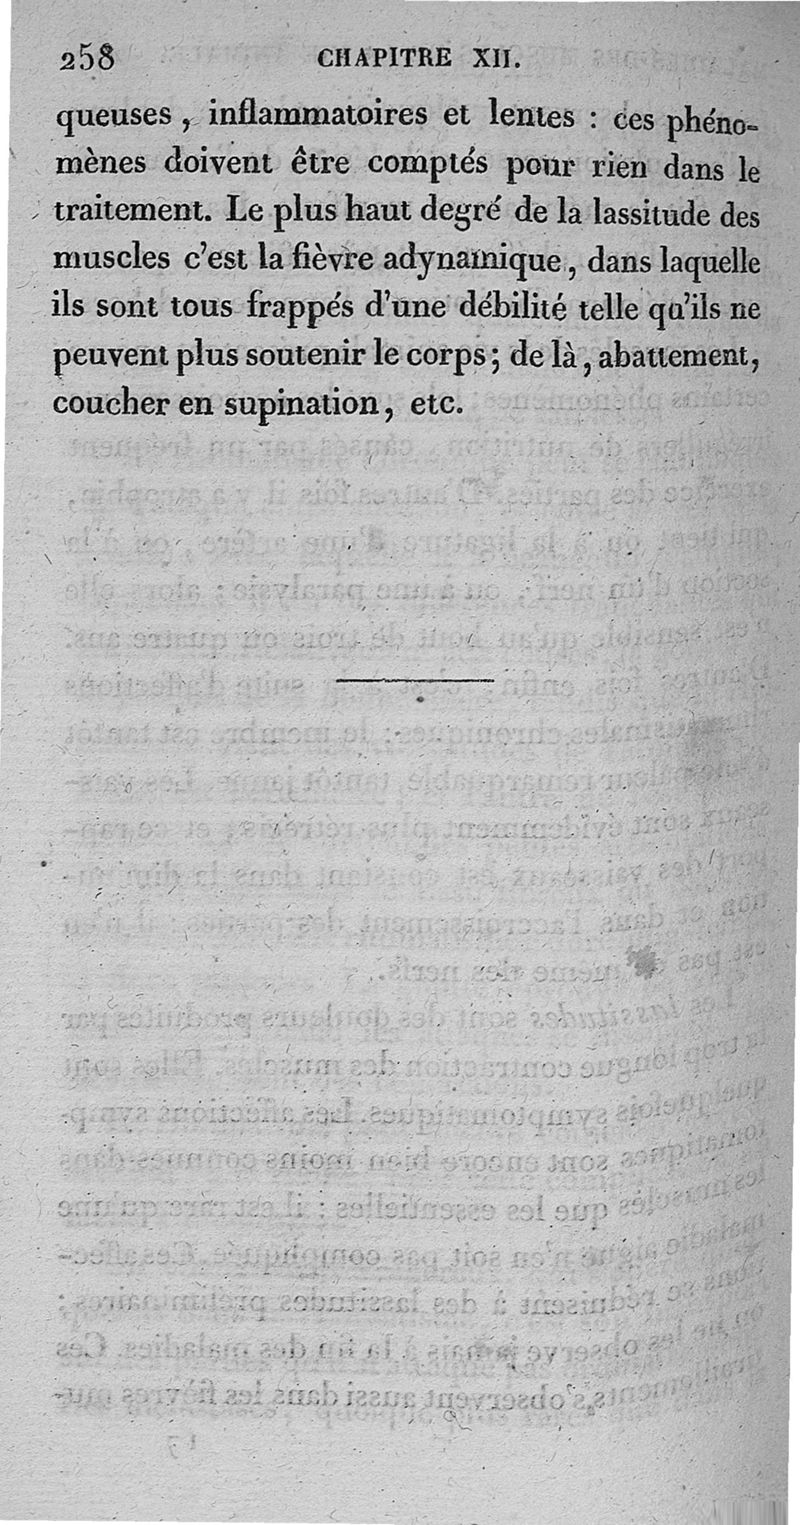 258 CHAPITRE XII.
queuses, inflammatoires et lentes : ces phéno-
mènes doivent être comptés pour rien dans le
traitement. Le plus haut degré de la lassitude des
muscles c'est la fièvre adynamique, dans laquelle
ils sont tous frappés d'une débilité telle qu'ils ne
peuvent plus soutenir le corps; de là, abattement,
coucher en supination, etc.